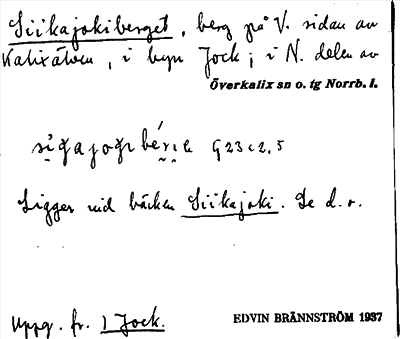 Siikajokiberget, berg på V. sidan av
Kalixälven, i byn Jock; i N. delen av
Överkalix sn o. tg Norrb. l.
Ligger vid bäcken Siikajoki. Se d. o.
Uppg. fr. 1 Jock.
EDVIN BRÄNNSTRÖM 1937